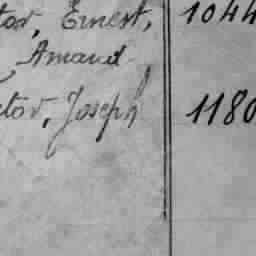 tor, Ernest, 1044
Amand
ctor, Joseph 1180